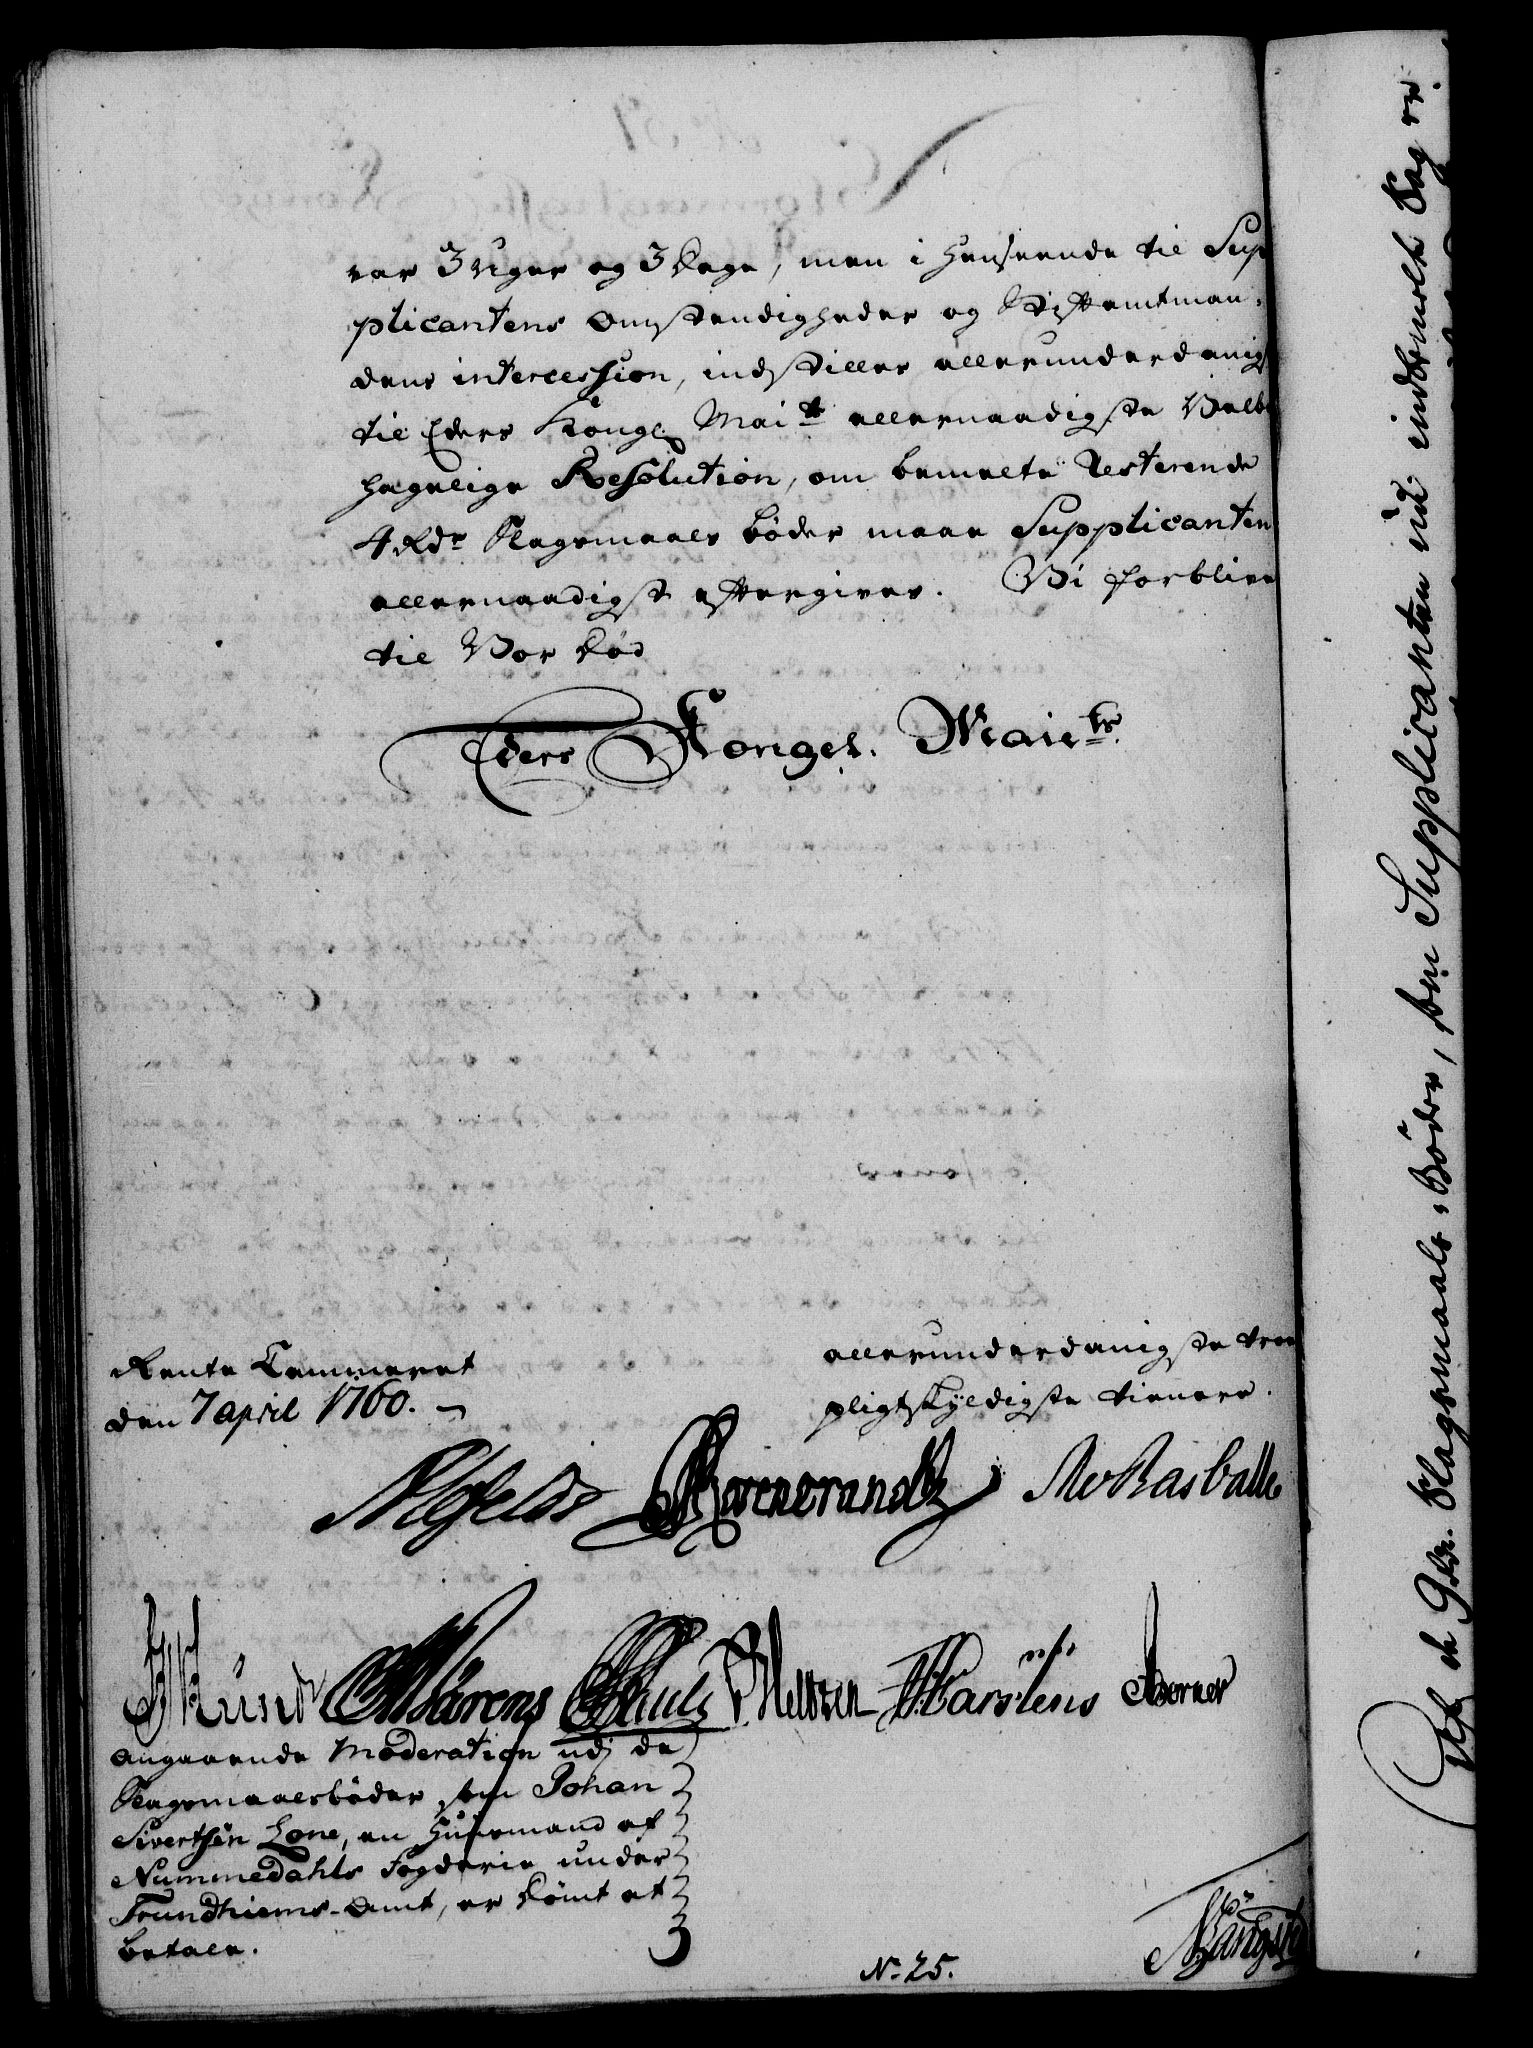 var 3 Uger og 3 Dage, men i henseende til Sup
plicantens Omstendigheder og Stiftamtman-
dens intercession, indstilles allerunderdanigst
til Eders Kongl. Mai:tt allernaadigste Velbe
hagelige Resolution, om bemelte Resterende
4 Rdr Slagsmaals bøder maae Supplicanten
allernaadigst eftergives. Vi forblive
til Vor Død
Eders Kongel. Maits
Rente Cammeret
den 7 april 1760.
allerunderdanigste troe
pligtskyldigste tienere.
Ahlefeldt
Rasballe
Mörens Pauli Holtzen Karstens Berner
angaaende Moderation udj de
Slagsmaalsbøder, som Johan
Sivertsen Lone, en Huusmand af
Nummedahls Fogderie under
Trundhiems-Amt, er dømt at
betale.
No 25.
de 9 Rdr. Slagsmaals-Bøder, som Supplicanten ud indbemelte Sag er